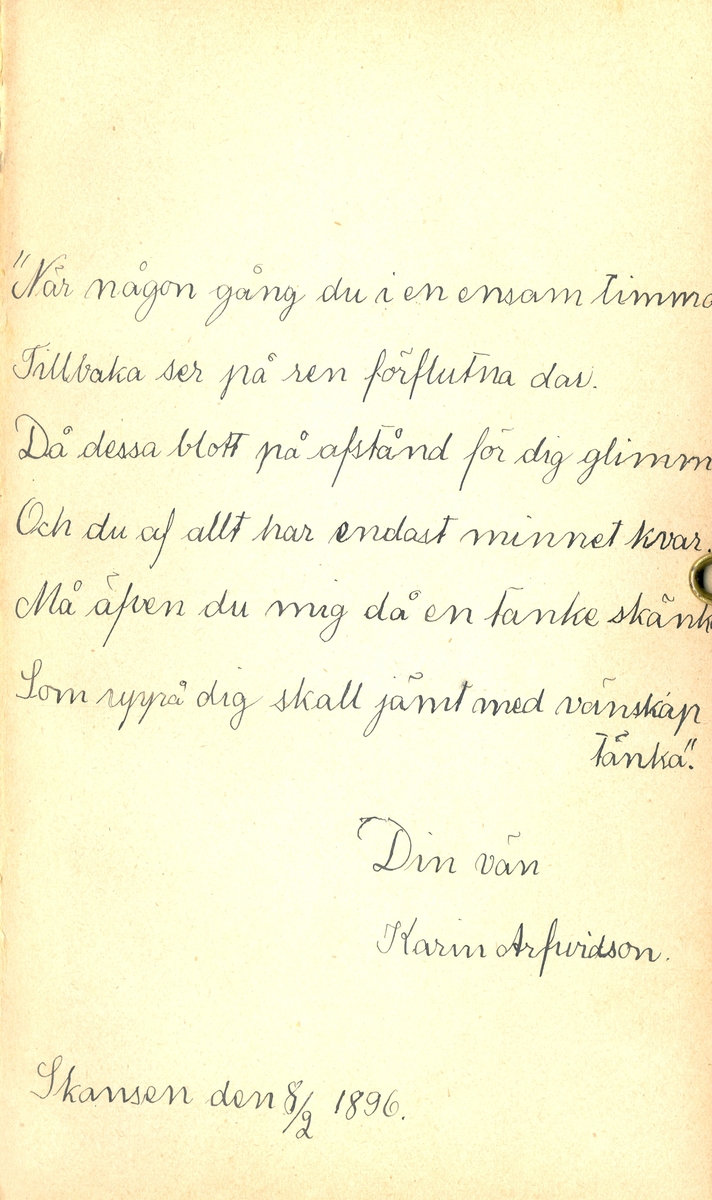 "När någon gång du i en ensam timma
Tillbaka ser på ren förflutna dar.
Då dessa blott på afstånd för dig glimm
Och du af allt har endast minnet kvar.
Må äfven du mig då en tanke skänk
Som uppå dig skall jämt med vänskap
tänka".
Din vän
Karin Arfwidson.
Skansen den 8/2 1896.